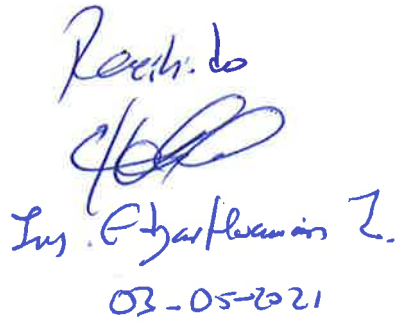 Recibido
Ing. Edgar Huamán Z.
03-05-2021